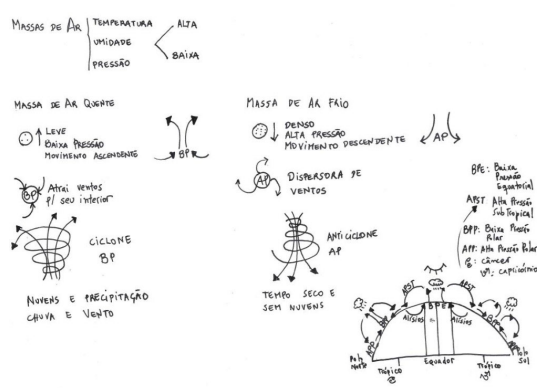 MASSAS DE AR
TEMPERATURA
UMIDADE
PRESSÃO
ALTA
BAIXA
MASSA DE AR QUENTE
LEVE
BAIXA PRESSÃO
MOVIMENTO ASCENDENTE
BP
BP
Atrai ventos
p/ seu interior
CICLONE
BP
NUVENS E PRECIPITAÇÃO
CHUVA E VENTO
MASSA DE AR FRIO
DENSO
ALTA PRESSÃO
MOVIMENTO DESCENDENTE
AP
AP
DISPERSORA DE
VENTOS
ANTICICLONE
AP
TEMPO SECO E
SEM NUVENS
BPE: Baixa
Pressão
Equatorial
APST: Alta Pressão
SubTropical
BPP: Baixa Pressão
Polar
APP: Alta Pressão Polar
♋: câncer
♑: capricórnio
APST
APST
BPE
BPP
BPP
APP
APP
Alísios
Alísios
Polo
Norte
Trópico
♋
Equador
Trópico
♑
Polo
Sul